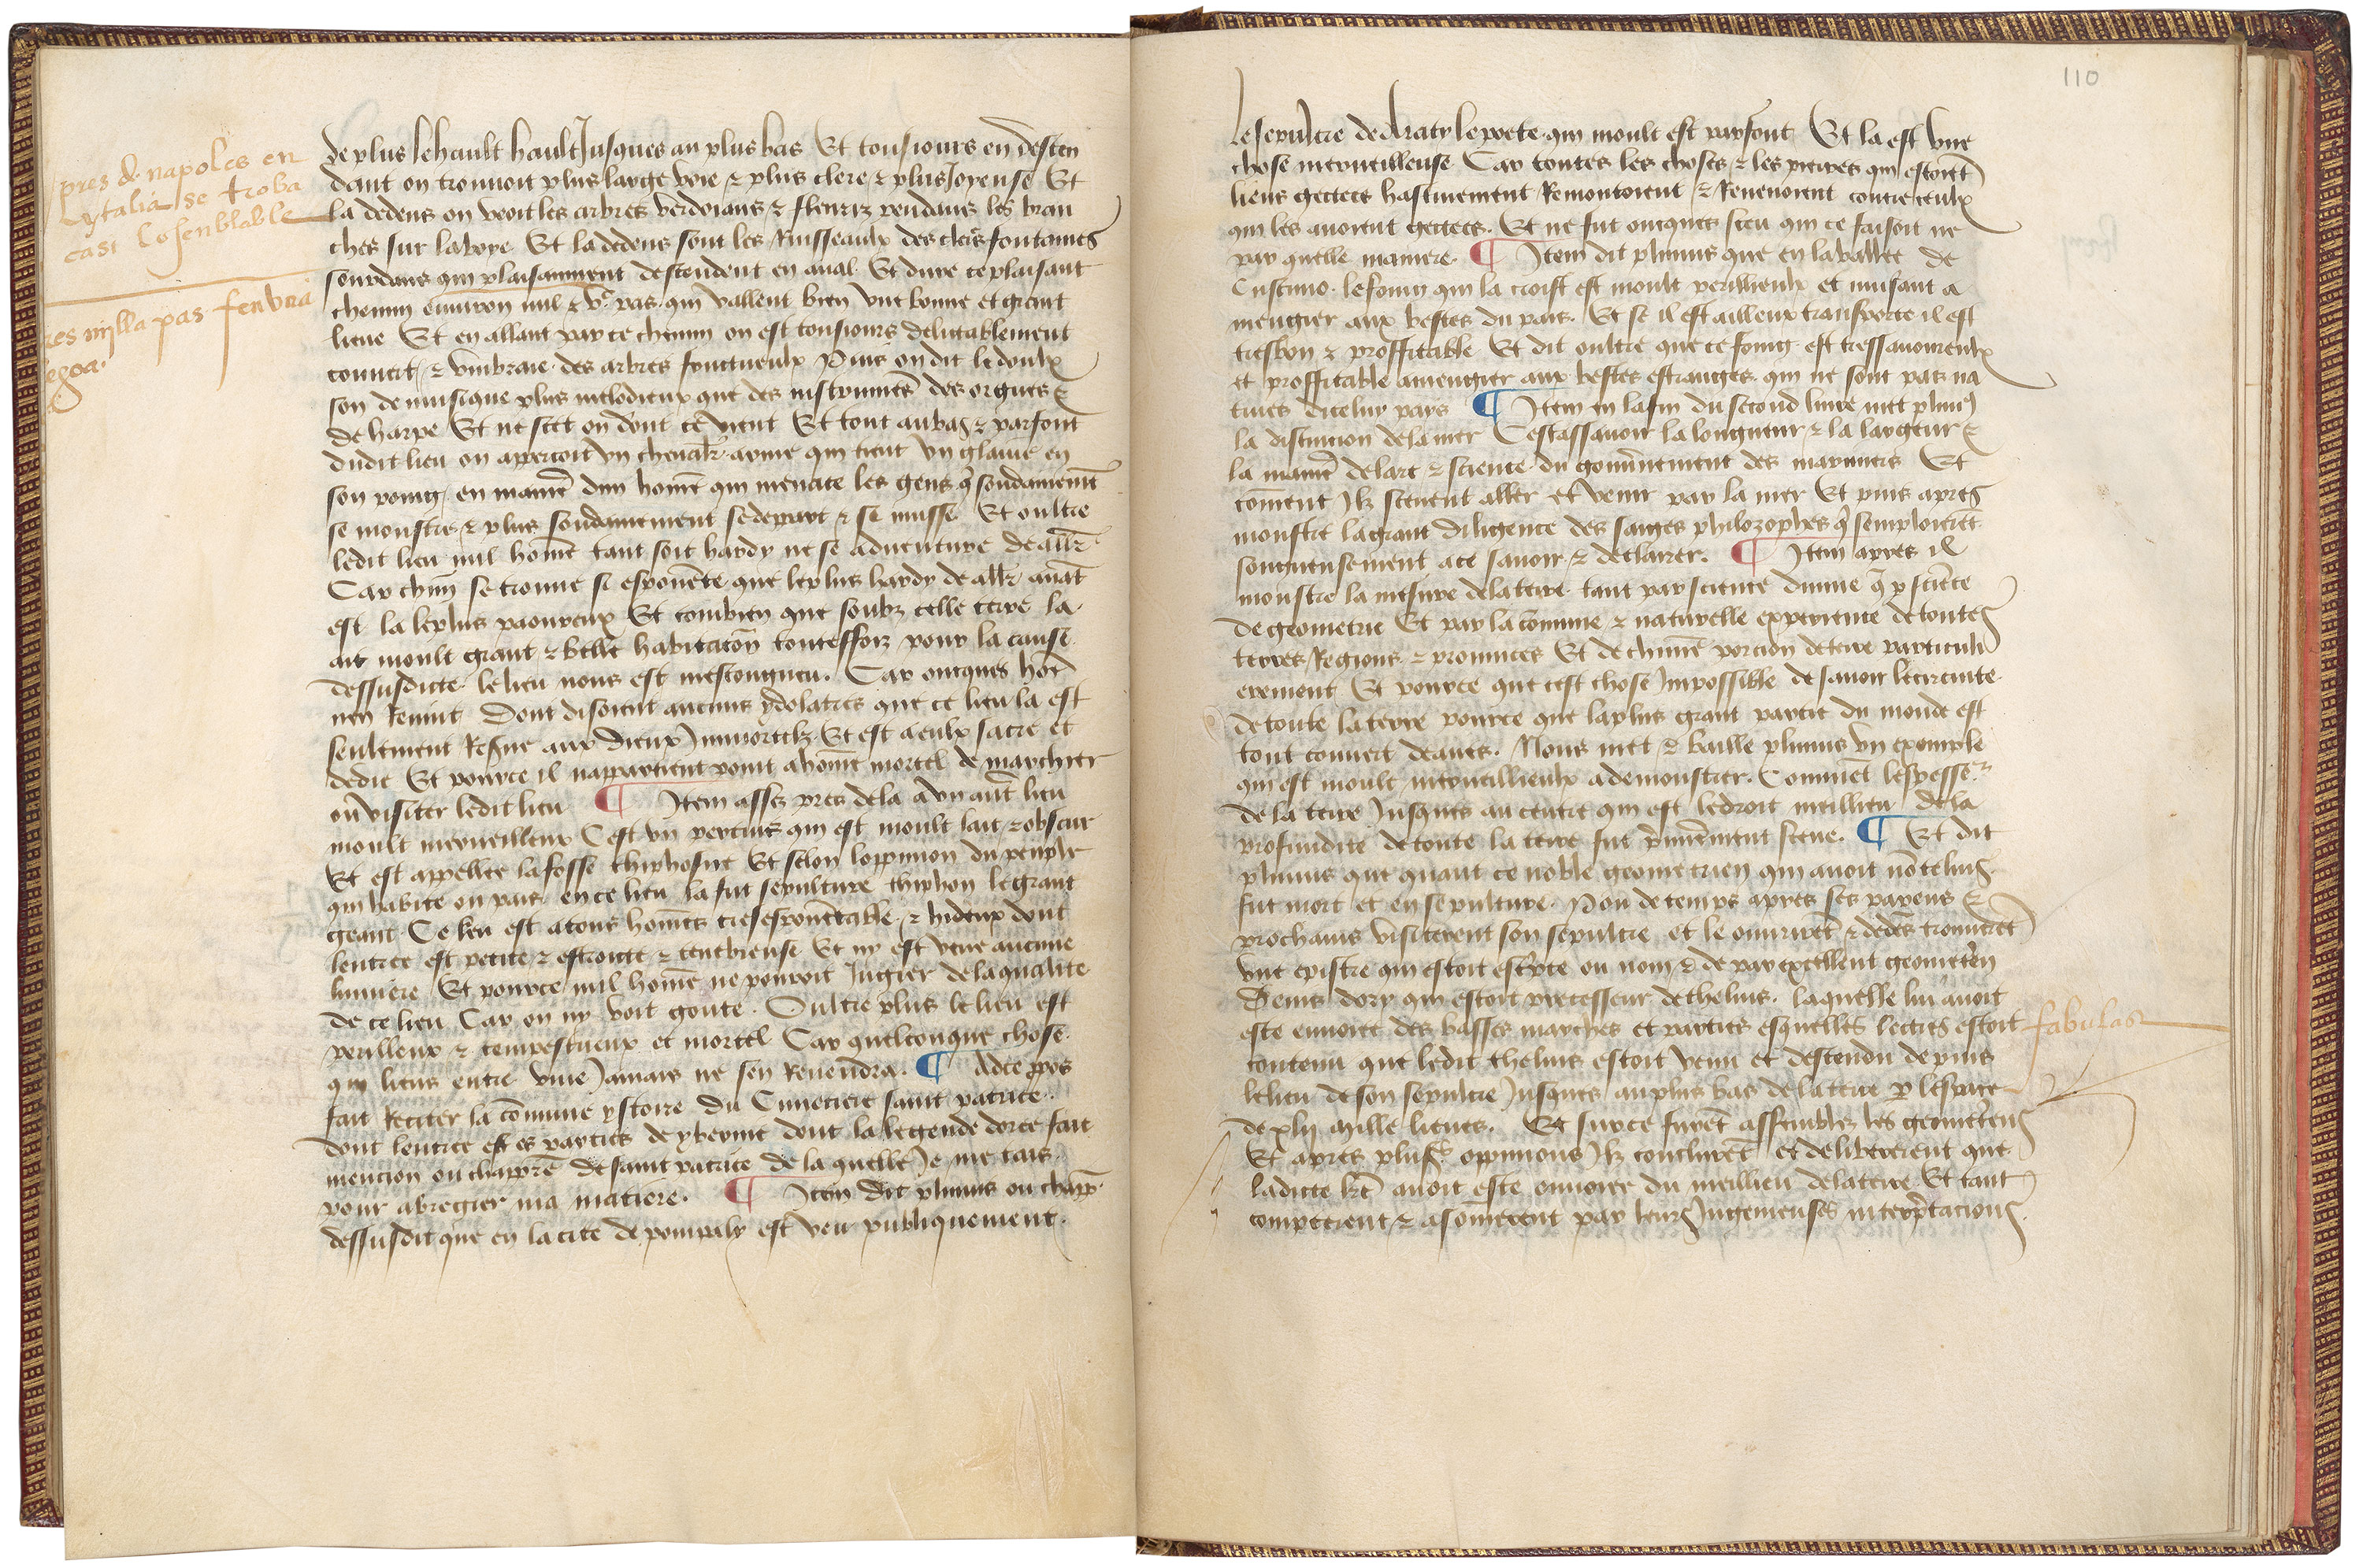 pres de napoles en
ytalia se troba
casi lo senblable
tres milla pas fen una
legoa.
de plus le hault hault Jusques au plus bas Et tousiours en descen
dant on trouvoit plus large voie & plus clere & plus Joyeuse Et
la dedens on veoit les arbres verdoians & fleuriz pendans les bran
ches sur la voye Et la dedens sont les Ruisseaulx des cleres fontaines
sourdans qui plaisamment descendent en aual Et dure ce plaisant
chemin enuiron mil & vc pas qui vallent bien une bonne et grant
lieue Et en allant par ce chemin on est tousiours delictablement
couuert & umbraie des arbres fructueulx Puis on dit le doulx
son de musique plus melodieux que des instrumens des orgues &
de harpe Et ne scet on dont ce vient Et tout au bas & parfont
dudit lieu on apercoit un cheualr arme qui tient un glaiue en
son poing en manie dun home qui menace les gens q soudainement
se monstre & plus soudainement se depart & se musse Et oultre
ledit lieu nul home tant soit hardy ne se aduenture de aller
Car chun se trouue si espouente que le plus hardy de aller auat
est la le plus paoureux Et combien que soubz celle terre la
ait moult grant & belle habitacon toutesfoiz pour la cause
dessusdicte le lieu nous est mescongneu. Car oncques home
nen Reuint Dont disoient aucuns ydolatres que ce lieu la est
seulement Reserue aux dieux Jmmortelz Et est a eulx sacre et
dedie Et pource il nappartient point a home mortel de marchier
ou visiter ledit lieu ¶ Item assez pres de la a vn autre lieu
moult merueilleux Cest un pertuis qui est moult lait & obscur
Et est appellee la fosse thiphosne Et selon loppinion du peuple
qui habite ou pais en ce lieu la fut sepulture thiphon le grant
geant Ce lieu est a tous homes tresespouetable & hideux dont
lentree est petite & estroitte & tenebreuse Et ny est veue aucune
lumiere Et pource nul home ne pouroit Jugier de la qualite
de ce lieu Car on ny voit goute. Oultre plus le lieu est
perilleux & tempestueux et mortel Car quelconque chose
qui liens entre viue Jamais ne sen Reuendra. ¶ Adce ppos
fait Reciter la comune ystoire du Cimetiere saint patrice
dont lentree est es parties de yberine dont la legende doree fait
mencion ou chappre de saint patrice de la quelle Je me tais
pour abregier ma matiere. ¶ Item dit plinius ou chapp
dessusdit que en la cite de pompily est veu publiquement
110
Le sepulcre de Araty le poete qui moult est parfont Et la est vne
chose merueilleuse Car toutes les choses & les pierres qui estoiet
liens gectees hastiuement Remontoient & Reuenoient contre ceulx
qui les auoient gectees. Et ne fut oncques sceu qui ce faisoit ne
par quelle maniere. ¶ Item dit plinius que en la vallee de
Custimo le foing qui la croist est moult perillieulx et nuisant a
mengier aux bestes du pais Et se il est ailleurs transporte il est
tresbon & proffitable Et dit oultre que ce foing est tressauoureulx
et proffitable a mengier aux bestes estranges qui ne sont pas na
tiues diceluy pays ¶ Item en la fin du second liure met plinius
la distincion de la mer Cestassauoir la longueur & la largeur &
la manie de lart & science du gouuernement des mariniers Et
coment Ilz sceuent aller et venir par la mer Et puis apres
monstre la grant diligence des saiges philozophes q semploieret
songneusement a ce sauoir & declarer. ¶ Item apres il
monstre la mesure de la terre tant par science diuine q p science
de geometrie Et par la comune & naturelle experience de toutes
terres Regions & prouinces Et de chune porcion de terre particuli
erement Et pource que cest chose Impossible de sauoir le circuite
de toute la terre pource que la plus grant partie du monde est
tout couuert deaues. Nous met & baille plinius vn exemple
qui est moult merueillieulx a demonstrer. Comment lespesse
de la terre Jusques au centre qui est le droit meillieu de la
profundite de toute la terre fut primeremet sceue. ¶ Et dit
plinius que quant ce noble geometrien qui auoit no telius
fut mort et en sepulture. Pou de temps apres ses parens &
prochains visiterent son sepulcre et le ouurirent & dedens trouueret
vne epistre qui estoit escripte ou nom & de par excellent geometrien
Denis dory qui estoit precesseur de thelius. laquelle lui auoit
este enuoiee des basses marches et parties esquelles lectres estoit
contenu que ledit thelius estoit venu et descendu de puis
le lieu de son sepulcre Jusques au plus bas de la terre p lespace
de xlij mille lieues. Et sur ce furet assemblez les geometriens
Et apres plusrs oppinions Ilz conclurent et delibererent que
ladicte lre auoit este enuoiee du meillieu de la terre Et tant
compterent & asomerent par leurs Ingenieuses interpretacions
fabulas